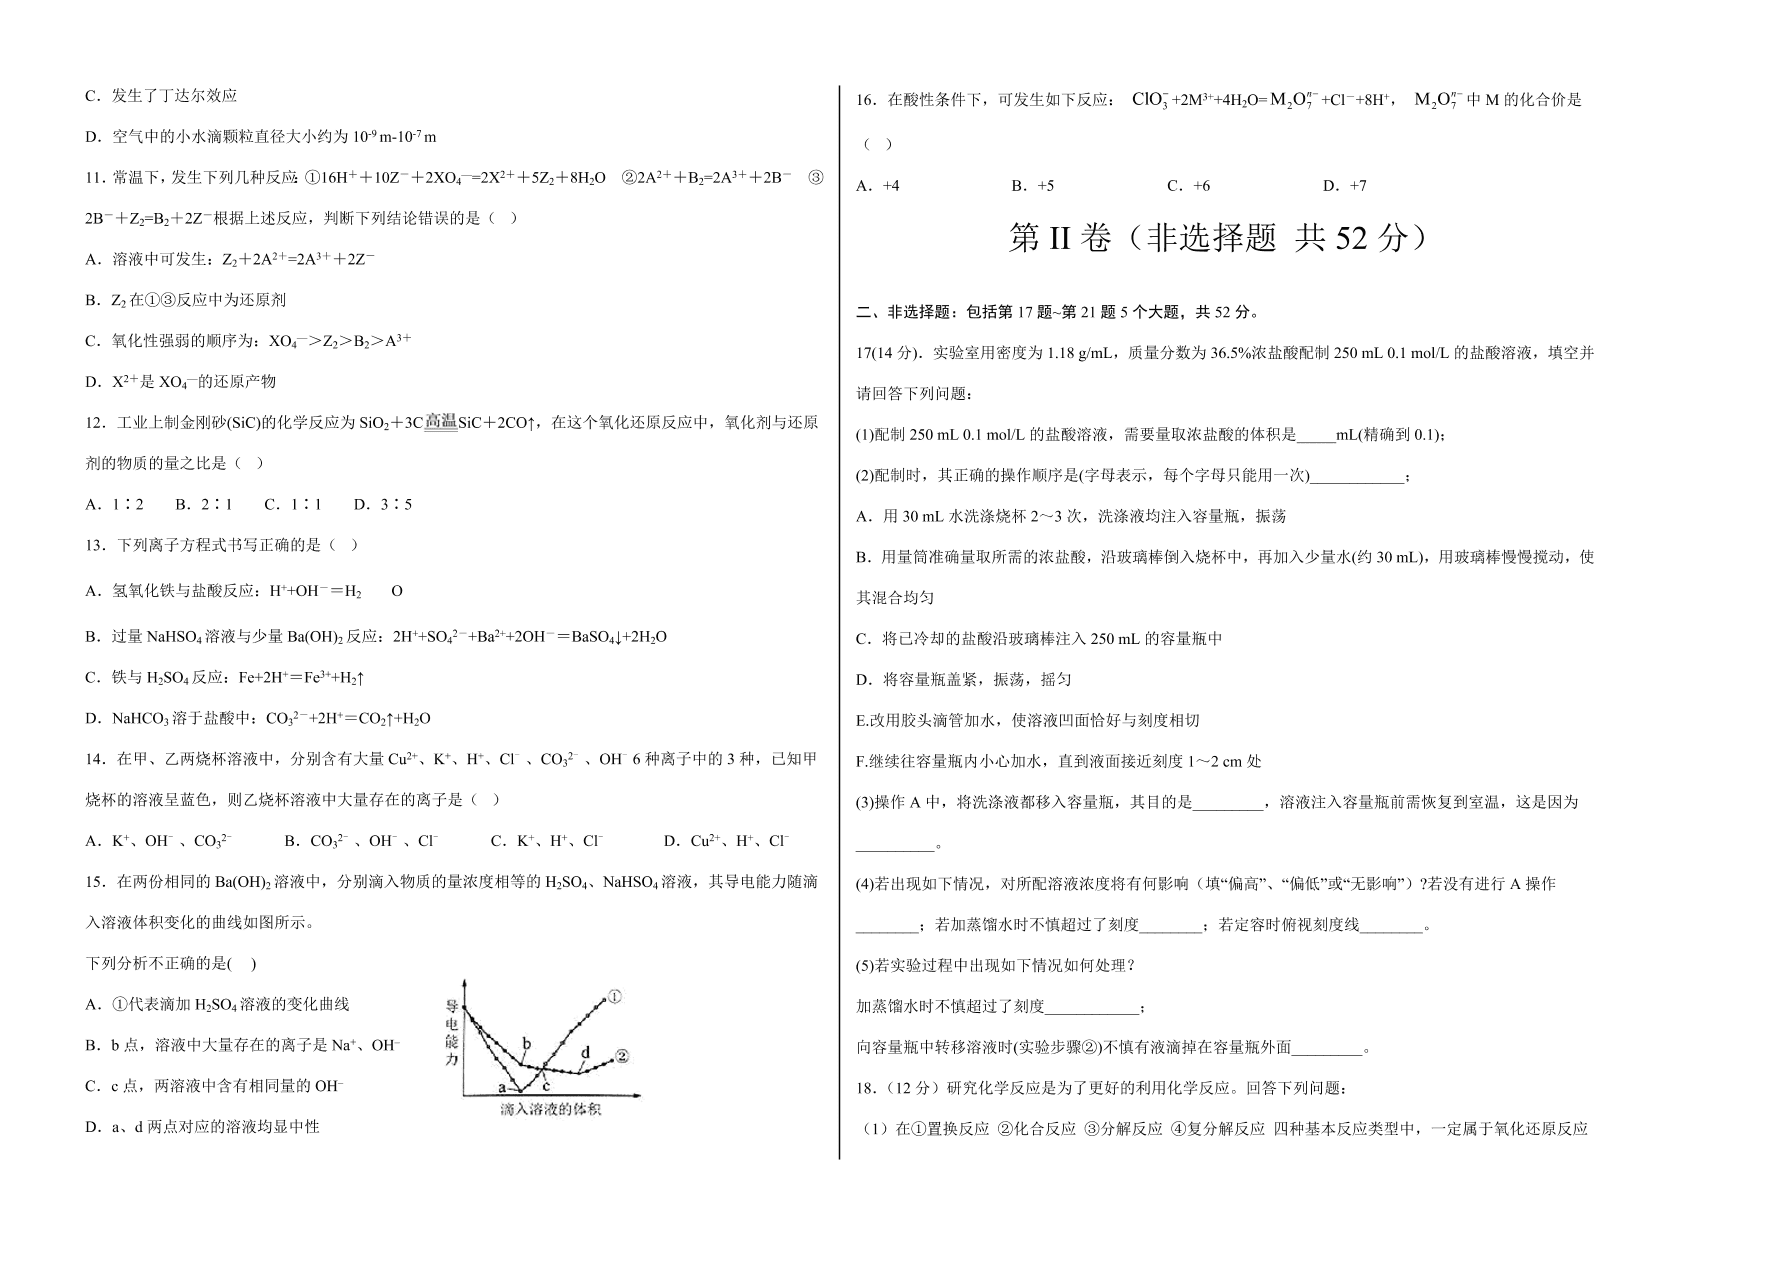 C．发生了丁达尔效应
D．空气中的小水滴颗粒直径大小约为 10⁻⁹ m-10⁻⁷ m
11．常温下，发生下列几种反应：①16H⁺＋10Z⁻＋2XO₄⁻=2X²⁺＋5Z₂＋8H₂O　②2A²⁺＋B₂=2A³⁺＋2B⁻　③
2B⁻＋Z₂=B₂＋2Z⁻根据上述反应，判断下列结论错误的是（　）
A．溶液中可发生：Z₂＋2A²⁺=2A³⁺＋2Z⁻
B．Z₂ 在①③反应中为还原剂
C．氧化性强弱的顺序为：XO₄⁻＞Z₂＞B₂＞A³⁺
D．X²⁺是 XO₄⁻的还原产物
12．工业上制金刚砂(SiC)的化学反应为 SiO₂＋3C高温SiC＋2CO↑，在这个氧化还原反应中，氧化剂与还原
剂的物质的量之比是（　）
A．1∶2　　B．2∶1　　C．1∶1　　D．3∶5
13．下列离子方程式书写正确的是（　）
A．氢氧化铁与盐酸反应：H⁺+OH⁻＝H₂　　O
B．过量 NaHSO₄ 溶液与少量 Ba(OH)₂ 反应：2H⁺+SO₄²⁻+Ba²⁺+2OH⁻＝BaSO₄↓+2H₂O
C．铁与 H₂SO₄ 反应：Fe+2H⁺＝Fe³⁺+H₂↑
D．NaHCO₃ 溶于盐酸中：CO₃²⁻+2H⁺＝CO₂↑+H₂O
14．在甲、乙两烧杯溶液中，分别含有大量 Cu²⁺、K⁺、H⁺、Cl⁻ 、CO₃²⁻ 、OH⁻ 6 种离子中的 3 种，已知甲
烧杯的溶液呈蓝色，则乙烧杯溶液中大量存在的离子是（　）
A．K⁺、OH⁻ 、CO₃²⁻　　B．CO₃²⁻ 、OH⁻ 、Cl⁻　　C．K⁺、H⁺、Cl⁻　　D．Cu²⁺、H⁺、Cl⁻
15．在两份相同的 Ba(OH)₂ 溶液中，分别滴入物质的量浓度相等的 H₂SO₄、NaHSO₄ 溶液，其导电能力随滴
入溶液体积变化的曲线如图所示。
下列分析不正确的是(　)
A．①代表滴加 H₂SO₄ 溶液的变化曲线
B．b 点，溶液中大量存在的离子是 Na⁺、OH⁻
C．c 点，两溶液中含有相同量的 OH⁻
D．a、d 两点对应的溶液均显中性
导电能力
①
b
d
②
a
c
滴入溶液的体积
16．在酸性条件下，可发生如下反应： ClO₃⁻+2M³⁺+4H₂O= M₂O₇ⁿ⁻+Cl⁻+8H⁺， M₂O₇ⁿ⁻中 M 的化合价是
（　）
A．+4　　B．+5　　C．+6　　D．+7
第 II 卷（非选择题 共 52 分）
二、非选择题：包括第 17 题~第 21 题 5 个大题，共 52 分。
17(14 分)．实验室用密度为 1.18 g/mL，质量分数为 36.5%浓盐酸配制 250 mL 0.1 mol/L 的盐酸溶液，填空并
请回答下列问题：
(1)配制 250 mL 0.1 mol/L 的盐酸溶液，需要量取浓盐酸的体积是_____mL(精确到 0.1)；
(2)配制时，其正确的操作顺序是(字母表示，每个字母只能用一次)____________；
A．用 30 mL 水洗涤烧杯 2～3 次，洗涤液均注入容量瓶，振荡
B．用量筒准确量取所需的浓盐酸，沿玻璃棒倒入烧杯中，再加入少量水(约 30 mL)，用玻璃棒慢慢搅动，使
其混合均匀
C．将已冷却的盐酸沿玻璃棒注入 250 mL 的容量瓶中
D．将容量瓶盖紧，振荡，摇匀
E.改用胶头滴管加水，使溶液凹面恰好与刻度相切
F.继续往容量瓶内小心加水，直到液面接近刻度 1～2 cm 处
(3)操作 A 中，将洗涤液都移入容量瓶，其目的是_________，溶液注入容量瓶前需恢复到室温，这是因为
__________。
(4)若出现如下情况，对所配溶液浓度将有何影响（填“偏高”、“偏低”或“无影响”）?若没有进行 A 操作
________；若加蒸馏水时不慎超过了刻度________；若定容时俯视刻度线________。
(5)若实验过程中出现如下情况如何处理？
加蒸馏水时不慎超过了刻度____________；
向容量瓶中转移溶液时(实验步骤②)不慎有液滴掉在容量瓶外面_________。
18.（12 分）研究化学反应是为了更好的利用化学反应。回答下列问题：
（1）在①置换反应 ②化合反应 ③分解反应 ④复分解反应 四种基本反应类型中，一定属于氧化还原反应